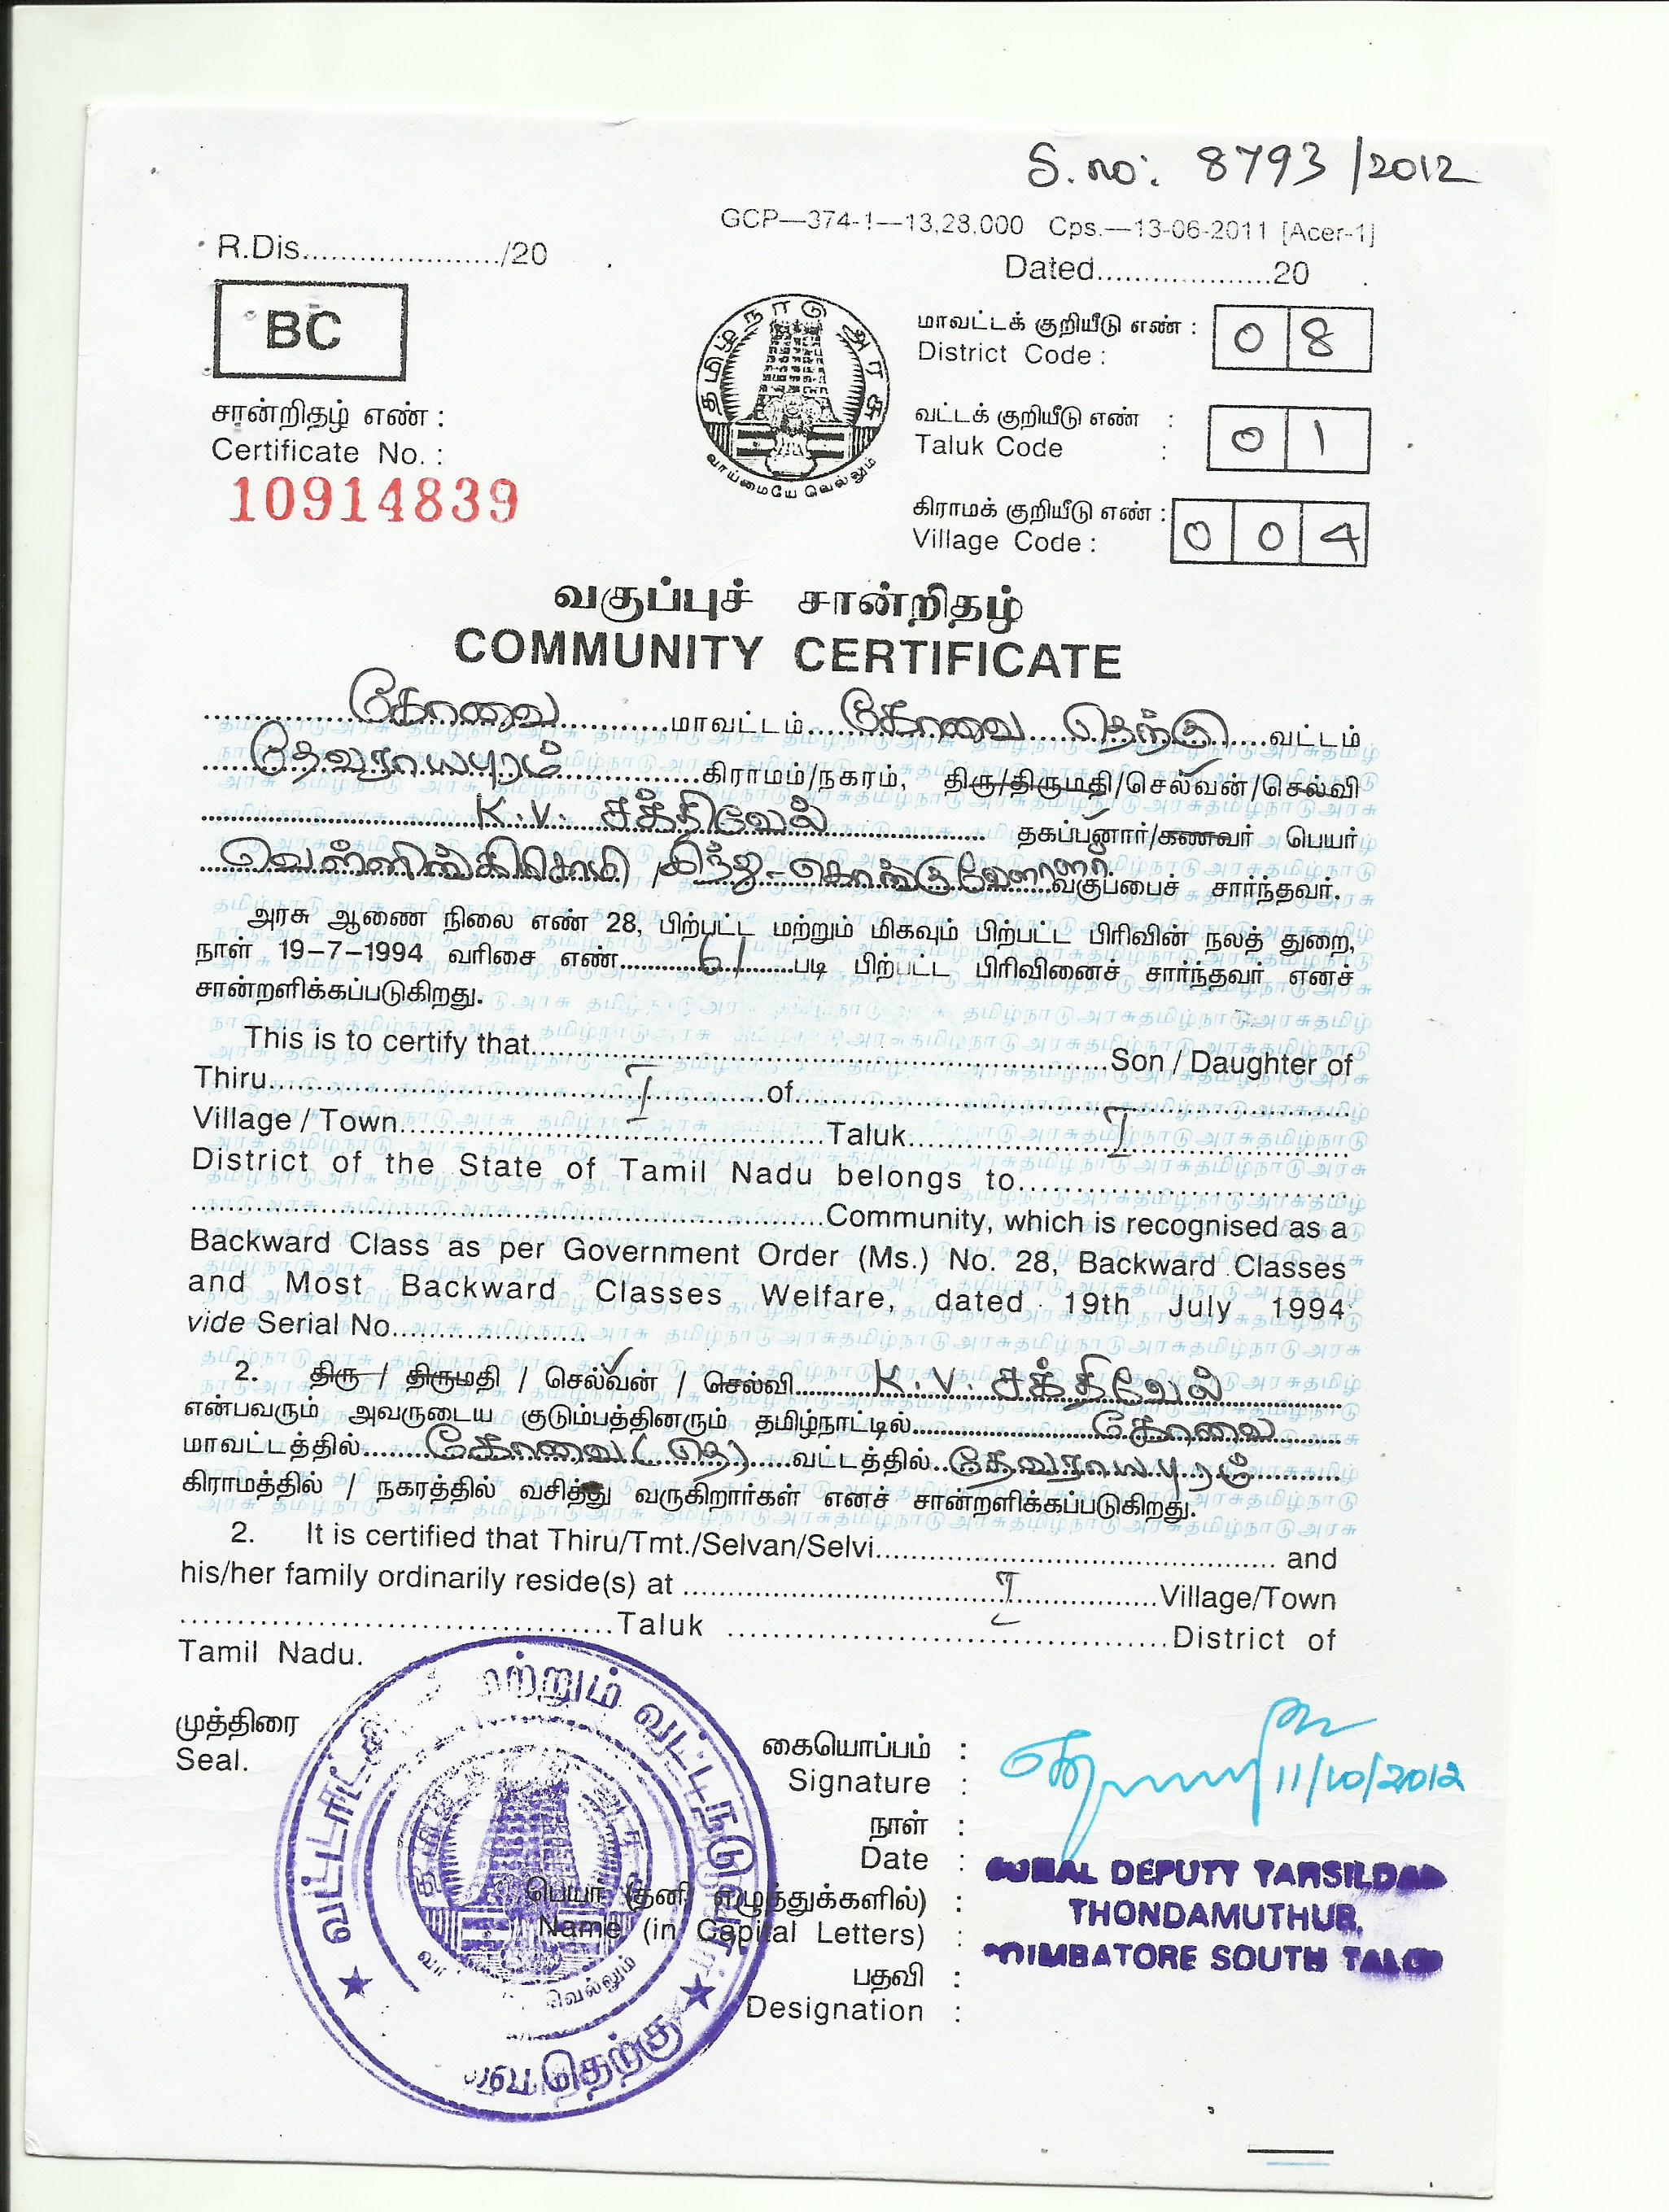 S.no: 8793/2012
GCP—374-1—13,28,000 Cps.—13-06-2011 [Acer-1]
R.Dis...................../20
Dated...................20
BC
தமிழ்நாடு அரசு
வாய்மையே வெல்லும்
மாவட்டக் குறியீடு எண் :
District Code :
0 8
சான்றிதழ் எண் :
Certificate No. :
10914839
வட்டக் குறியீடு எண் :
Taluk Code :
0 1
கிராமக் குறியீடு எண் :
Village Code :
0 0 4
வகுப்புச் சான்றிதழ்
COMMUNITY CERTIFICATE
கோவை மாவட்டம் கோவை தெற்கு வட்டம்
தேவராயபுரம் கிராமம்/நகரம், திரு/திருமதி/செல்வன்/செல்வி
K.V. சக்திவேல் தகப்பனார்/கணவர் பெயர்
வெள்ளிங்கிரிசாமி /இந்து-கொங்குவேளாளர் வகுப்பைச் சார்ந்தவர்.
அரசு ஆணை நிலை எண் 28, பிற்பட்ட மற்றும் மிகவும் பிற்பட்ட பிரிவின் நலத் துறை,
நாள் 19–7–1994 வரிசை எண் 61 படி பிற்பட்ட பிரிவினைச் சார்ந்தவர் எனச்
சான்றளிக்கப்படுகிறது.
This is to certify that..........Son / Daughter of
Thiru..........of..........
Village / Town..........Taluk..........
District of the State of Tamil Nadu belongs to..........
..........Community, which is recognised as a
Backward Class as per Government Order (Ms.) No. 28, Backward Classes
and Most Backward Classes Welfare, dated 19th July 1994
vide Serial No..........
2. திரு / திருமதி / செல்வன் / செல்வி K.V. சக்திவேல்
என்பவரும் அவருடைய குடும்பத்தினரும் தமிழ்நாட்டில் கோவை
மாவட்டத்தில் கோவை (தெ) வட்டத்தில் தேவராயபுரம்
கிராமத்தில் / நகரத்தில் வசித்து வருகிறார்கள் எனச் சான்றளிக்கப்படுகிறது.
2. It is certified that Thiru/Tmt./Selvan/Selvi.......... and
his/her family ordinarily reside(s) at ..........Village/Town
..........Taluk ..........District of
Tamil Nadu.
முத்திரை
Seal.
மற்றும் வட்ட
வெல்லும்
தெற்கு
கையொப்பம் :
Signature :
11/10/2012
நாள் :
Date :
பெயர் (தனி எழுத்துக்களில்) :
Name (in Capital Letters) :
பதவி :
Designation :
DEPUTY TAHSILDAR
THONDAMUTHUR,
COIMBATORE SOUTH TALUK